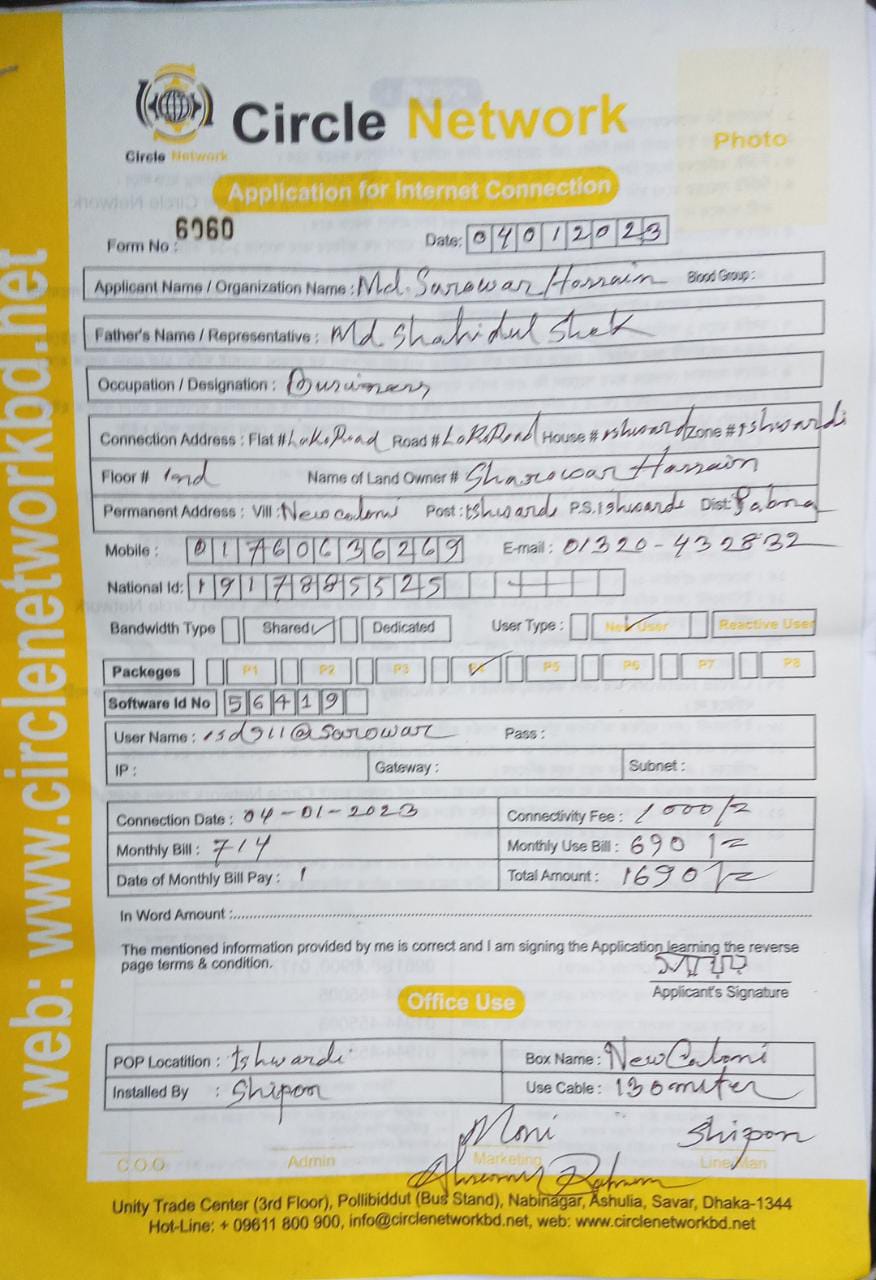 Circle Network
Circle Network
Photo
Application for Internet Connection
Form No : 6960
Date: 04012023
Applicant Name / Organization Name : Md. Sarowar Hossain Blood Group :
Father's Name / Representative : Md Shahidul Shek
Occupation / Designation :
Connection Address : Flat # LakeRoad Road # LakeRoad House # Ishwardi Zone # Ishwardi
Floor # 1nd Name of Land Owner # Sharowar Hossain
Permanent Address : Vill : New coloni Post : Ishwardi P.S. Ishwardi Dist: Pabna
Mobile : 01760636269 E-mail : 01320-432832
National Id: 1917885525
Bandwidth Type Shared Dedicated User Type : New User Reactive User
Packeges P1 P2 P3 P4 P5 P6 P7 P8
Software Id No 56419
User Name : isd911@sarowar Pass :
IP : Gateway : Subnet :
Connection Date : 04-01-2023 Connectivity Fee : 1000/=
Monthly Bill : 714 Monthly Use Bill : 690/=
Date of Monthly Bill Pay : 1 Total Amount : 1690/=
In Word Amount :
The mentioned information provided by me is correct and I am signing the Application learning the reverse
page terms & condition.
Applicant's Signature
Office Use
POP Locatition : Ishwardi Box Name : New Caloni
Installed By : Shipon Use Cable : 130 miter
Moni Shipon
C.O.O Admin Marketing Line Man
Unity Trade Center (3rd Floor), Pollibiddut (Bus Stand), Nabinagar, Ashulia, Savar, Dhaka-1344
Hot-Line: + 09611 800 900, info@circlenetworkbd.net, web: www.circlenetworkbd.net
web: www.circlenetworkbd.net